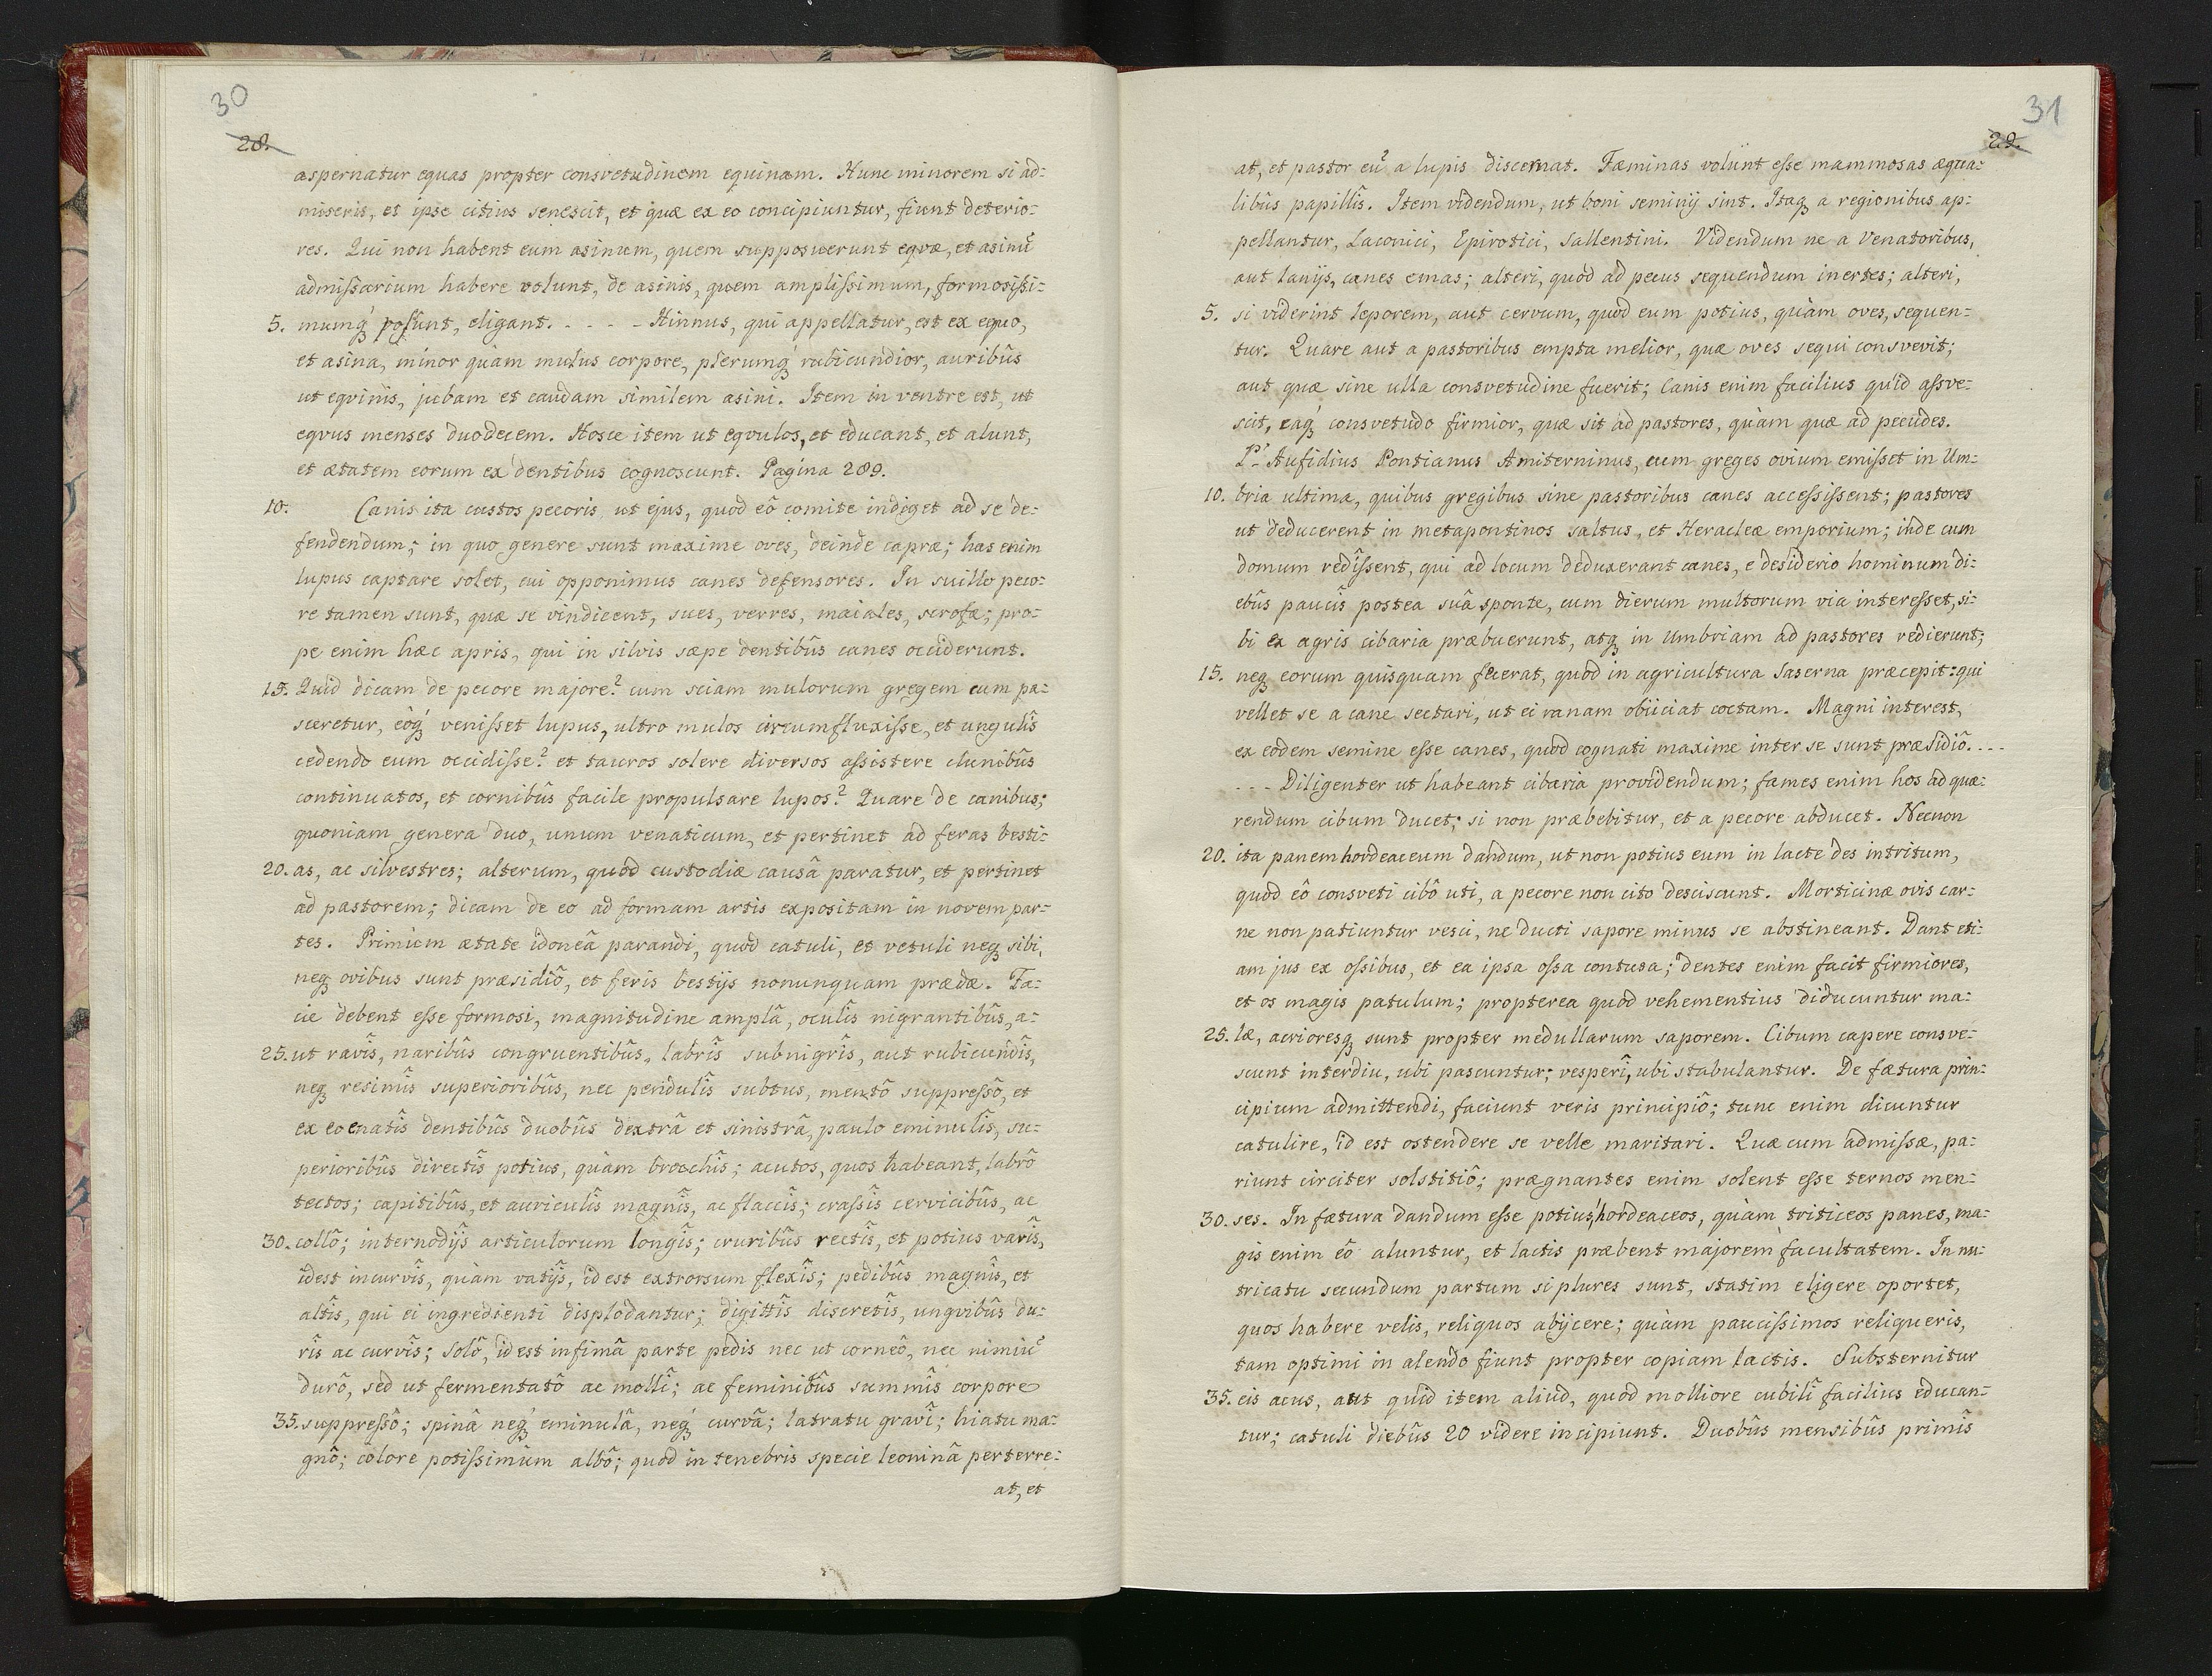 30
28.
aspernatur equas propter consvetudinem equinam. Hunc minorem si ad:
miseris, et ipse citius senescit, et quæ ex eo concipiuntur, fiunt deterio:
res. Qui non habent eum asinum, quem supposuerunt eqvæ, et asinũ
admiſsarium habere volunt, de asinis, quem ampliſsimum, formosiſsi:
5. mumq́ poſsunt, eligant. - - - - Hinnus, qui appellatur, est ex equo,
et asina, minor quàm mulus corpore, plerumq́ rubicundior, auribûs
ut eqvinis, jubam et caudam similem asini. Item in ventre est, ut
eqvus menses duodecem. Hosce item ut eqvulos, et educant, et alunt,
et ætatem eorum ex dentibus cognoscunt. Pagina 289.
10. Canis ita custos pecoris, ut ejus, quod eô comite indiget ad se de:
fendendum; in quo genere sunt maxime oves, deinde capræ; has enim
lupus captare solet, cui opponimus canes defensores. In suillo peco:
re tamen sunt, quæ se vindicent, sues, verres, maiales, scrofæ; pro:
pe enim hæc apris, qui in silvis sæpe dentibûs canes occiderunt.
15. Quid dicam de pecore majore? cum sciam mulorum gregem cum pa:
sceretur, eôq́ venisset lupus, ultro mulos circumfluxiſse, et ungulîs
cedendo eum occidiſse? et tauros solere diversos aſsistere clunibûs
continuatos, et cornibûs facile propulsare lupos? Quare de canibus;
quoniam genera duo, unum venaticum, et pertinet ad feras besti:
20. as, ac silvestres; alterum, quod custodiæ causâ paratur, et pertinet
ad pastorem; dicam de eo ad formam artis expositam in novem par:
tes. Primùm ætate idoneâ parandi, quod catuli, et vetuli neq́ sibi,
neq́ ovibus sunt præsidiô, et feris bestijs nonunquam prædæ. Fa:
cie debent eſse formosi, magnitudine amplâ, oculîs nigrantibûs, a:
25. ut ravîs, naribûs congruentibûs, labrîs subnigrîs, aut rubicundîs,
neq́ resimîs superioribûs, nec pendulîs subtus, mentô suppreſsô, et
ex eo enatîs dentibûs duobûs dextrâ et sinistrâ, paulo eminulîs, su:
perioribûs directîs potius, quàm brocchîs; acutos, quos habeant, labrô
tectos; capitibûs, et auriculîs magnîs, ac flaccîs; craſsîs cervicibûs, ac
30. collô; internodijs articulorum longîs; cruribûs rectîs, et potius varîs,
idest incurvîs, quàm vatijs, id est extrorsum flexîs; pedibûs magnîs, et
altîs, qui ei ingredienti displodantur; digittîs discretîs, ungvibûs du:
rîs ac curvîs; solô, id est infimâ parte pedis nec ut corneô, nec nimiũ
durô, sed ut fermentatô ac mollî; ac feminibûs summîs corpore
35. suppreſsô; spinâ neq́ eminulâ, neq́ curvâ; latratu gravî; hiatu ma:
gnô; colore potiſsimùm albô; quod in tenebris specie leoninâ perterre:
at, et
31
29.
at, et pastor eũ a lupis discernat. Fæminas volunt eſse mammosas æqua:
libûs papillîs. Item videndum, ut boni seminij sint. Itaq́ a regionibus ap:
pellantur, Laconici, Epirotici, Sallentini. Videndum ne a Venatoribus,
aut lanijs, canes emas; alteri, quod ad pecus sequendum inertes; alteri,
5. si viderint leporem, aut cervum, quod eum potius, quàm oves, sequen:
tur. Quare aut a pastoribus empta melior, quæ oves sequi consvevit;
aut quæ sine ulla consvetudine fuerit; Canis enim facilius quid aſsve:
scit, eaq́ consvetudo firmior, quæ sit ad pastores, quàm quæ ad pecudes.
P. Aufidius Pontianus Amiterninus, cum greges ovium emiſset in Um:
10. bria ultima, quibus gregibus sine pastoribus canes acceſsiſsent; pastores
ut deducerent in metapontinos saltus, et Heracleæ emporium; inde cum
domum rediſsent, qui ad locum deduxerant canes, e desiderio hominum di:
ebûs paucîs postea suâ sponte, cum dierum multorum via intereſset, si:
bi ex agris cibaria præbuerunt, atq́ in Umbriam ad pastores redierunt;
15. neq́ eorum quisquam fecerat, quod in agricultura Saserna præcepit: qui
vellet se a cane sectari, ut ei ranam obijciat coctam. Magni interest,
ex eodem semine eſse canes, quod cognati maxime inter se sunt præsidiô. . . .
- - - Diligenter ut habeant cibaria providendum; fames enim hos ad quæ:
rendum cibum ducet; si non præbebitur, et a pecore abducet. Necnon
20. ita panem hordeaceum dandum, ut non potius eum in lacte des intritum,
quod eô consveti cibô uti, a pecore non cito desciscunt. Morticinæ ovis car:
ne non patiuntur vesci, ne ducti sapore minus se abstineant. Dant eti:
am jus ex oſsibus, et ea ipsa oſsa contusa; dentes enim facit firmiores,
et os magis patulum; propterea quod vehementius diducuntur ma:
25. læ, acrioresq́ sunt propter medullarum saporem. Cibum capere consve:
scunt interdiu, ubi pascuntur; vesperî, ubi stabulantur. De fætura prin:
cipium admittendi, faciunt veris principiô; tunc enim dicuntur
catulire, id est ostendere se velle maritari. Quæ cum admiſsæ, pa:
riunt circiter solstitiô; prægnantes enim solent eſse ternos men:
30. ses. In fætura dandum eſse potius hordeaceos, quàm triticeos panes, ma:
gis enim eô aluntur, et lactis præbent majorem facultatem. In nu:
tricatu secundum partum si plures sunt, statim eligere oportet,
quos habere velis, reliquos abijcere; quàm pauciſsimos reliqueris,
tam optimi in alendo fiunt propter copiam lactis. Substernitur
35. eis acus, aut quid item aliud, quod molliore cubilî facilius educan:
tur; catuli diebûs 20 videre incipiunt. Duobûs mensibûs primîs